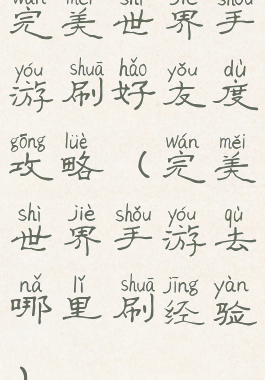 wán měi shì jiè shǒu
完美世界手
yóu shuā hǎo yǒu dù
游刷好友度
gōng lüè wán měi
攻略（完美
shì jiè shǒu yóu qù
世界手游去
nǎ lǐ shuā jīng yàn
哪里刷经验
）